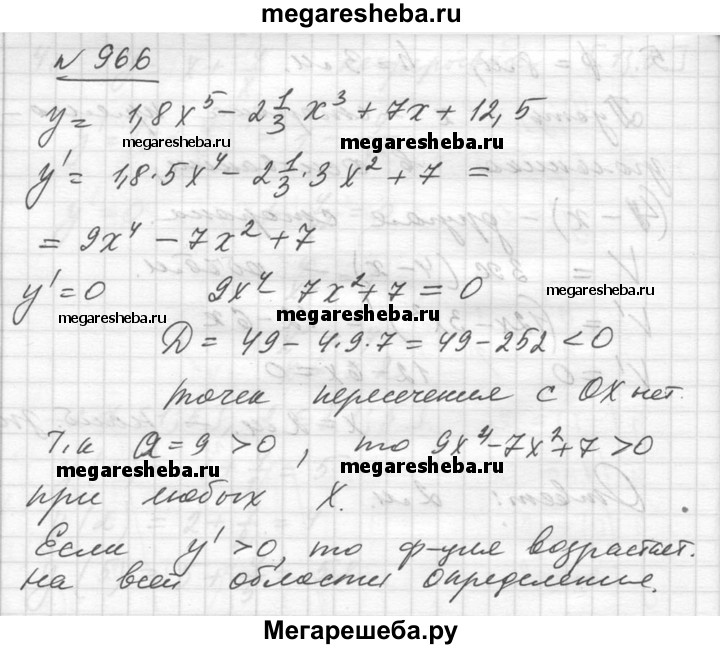 megaresheba.ru
№ 966
y = 1,8x⁵ - 2 1/3 x³ + 7x + 12,5
megaresheba.ru
megaresheba.ru
y' = 1,8·5x⁴ - 2 1/3·3x² + 7 =
= 9x⁴ - 7x² + 7
y' = 0 9x⁴ - 7x² + 7 = 0
megaresheba.ru
megaresheba.ru
megaresheba.ru
D = 49 - 4·9·7 = 49 - 252 < 0
точек пересечения с OX нет.
Т.к a = 9 > 0, то 9x⁴ - 7x² + 7 > 0
megaresheba.ru
megaresheba.ru
при любых X.
Если y' > 0, то ф-ция возрастает.
на всей области определения.
megaresheba.ru
megaresheba.ru
Мегарешеба.ру